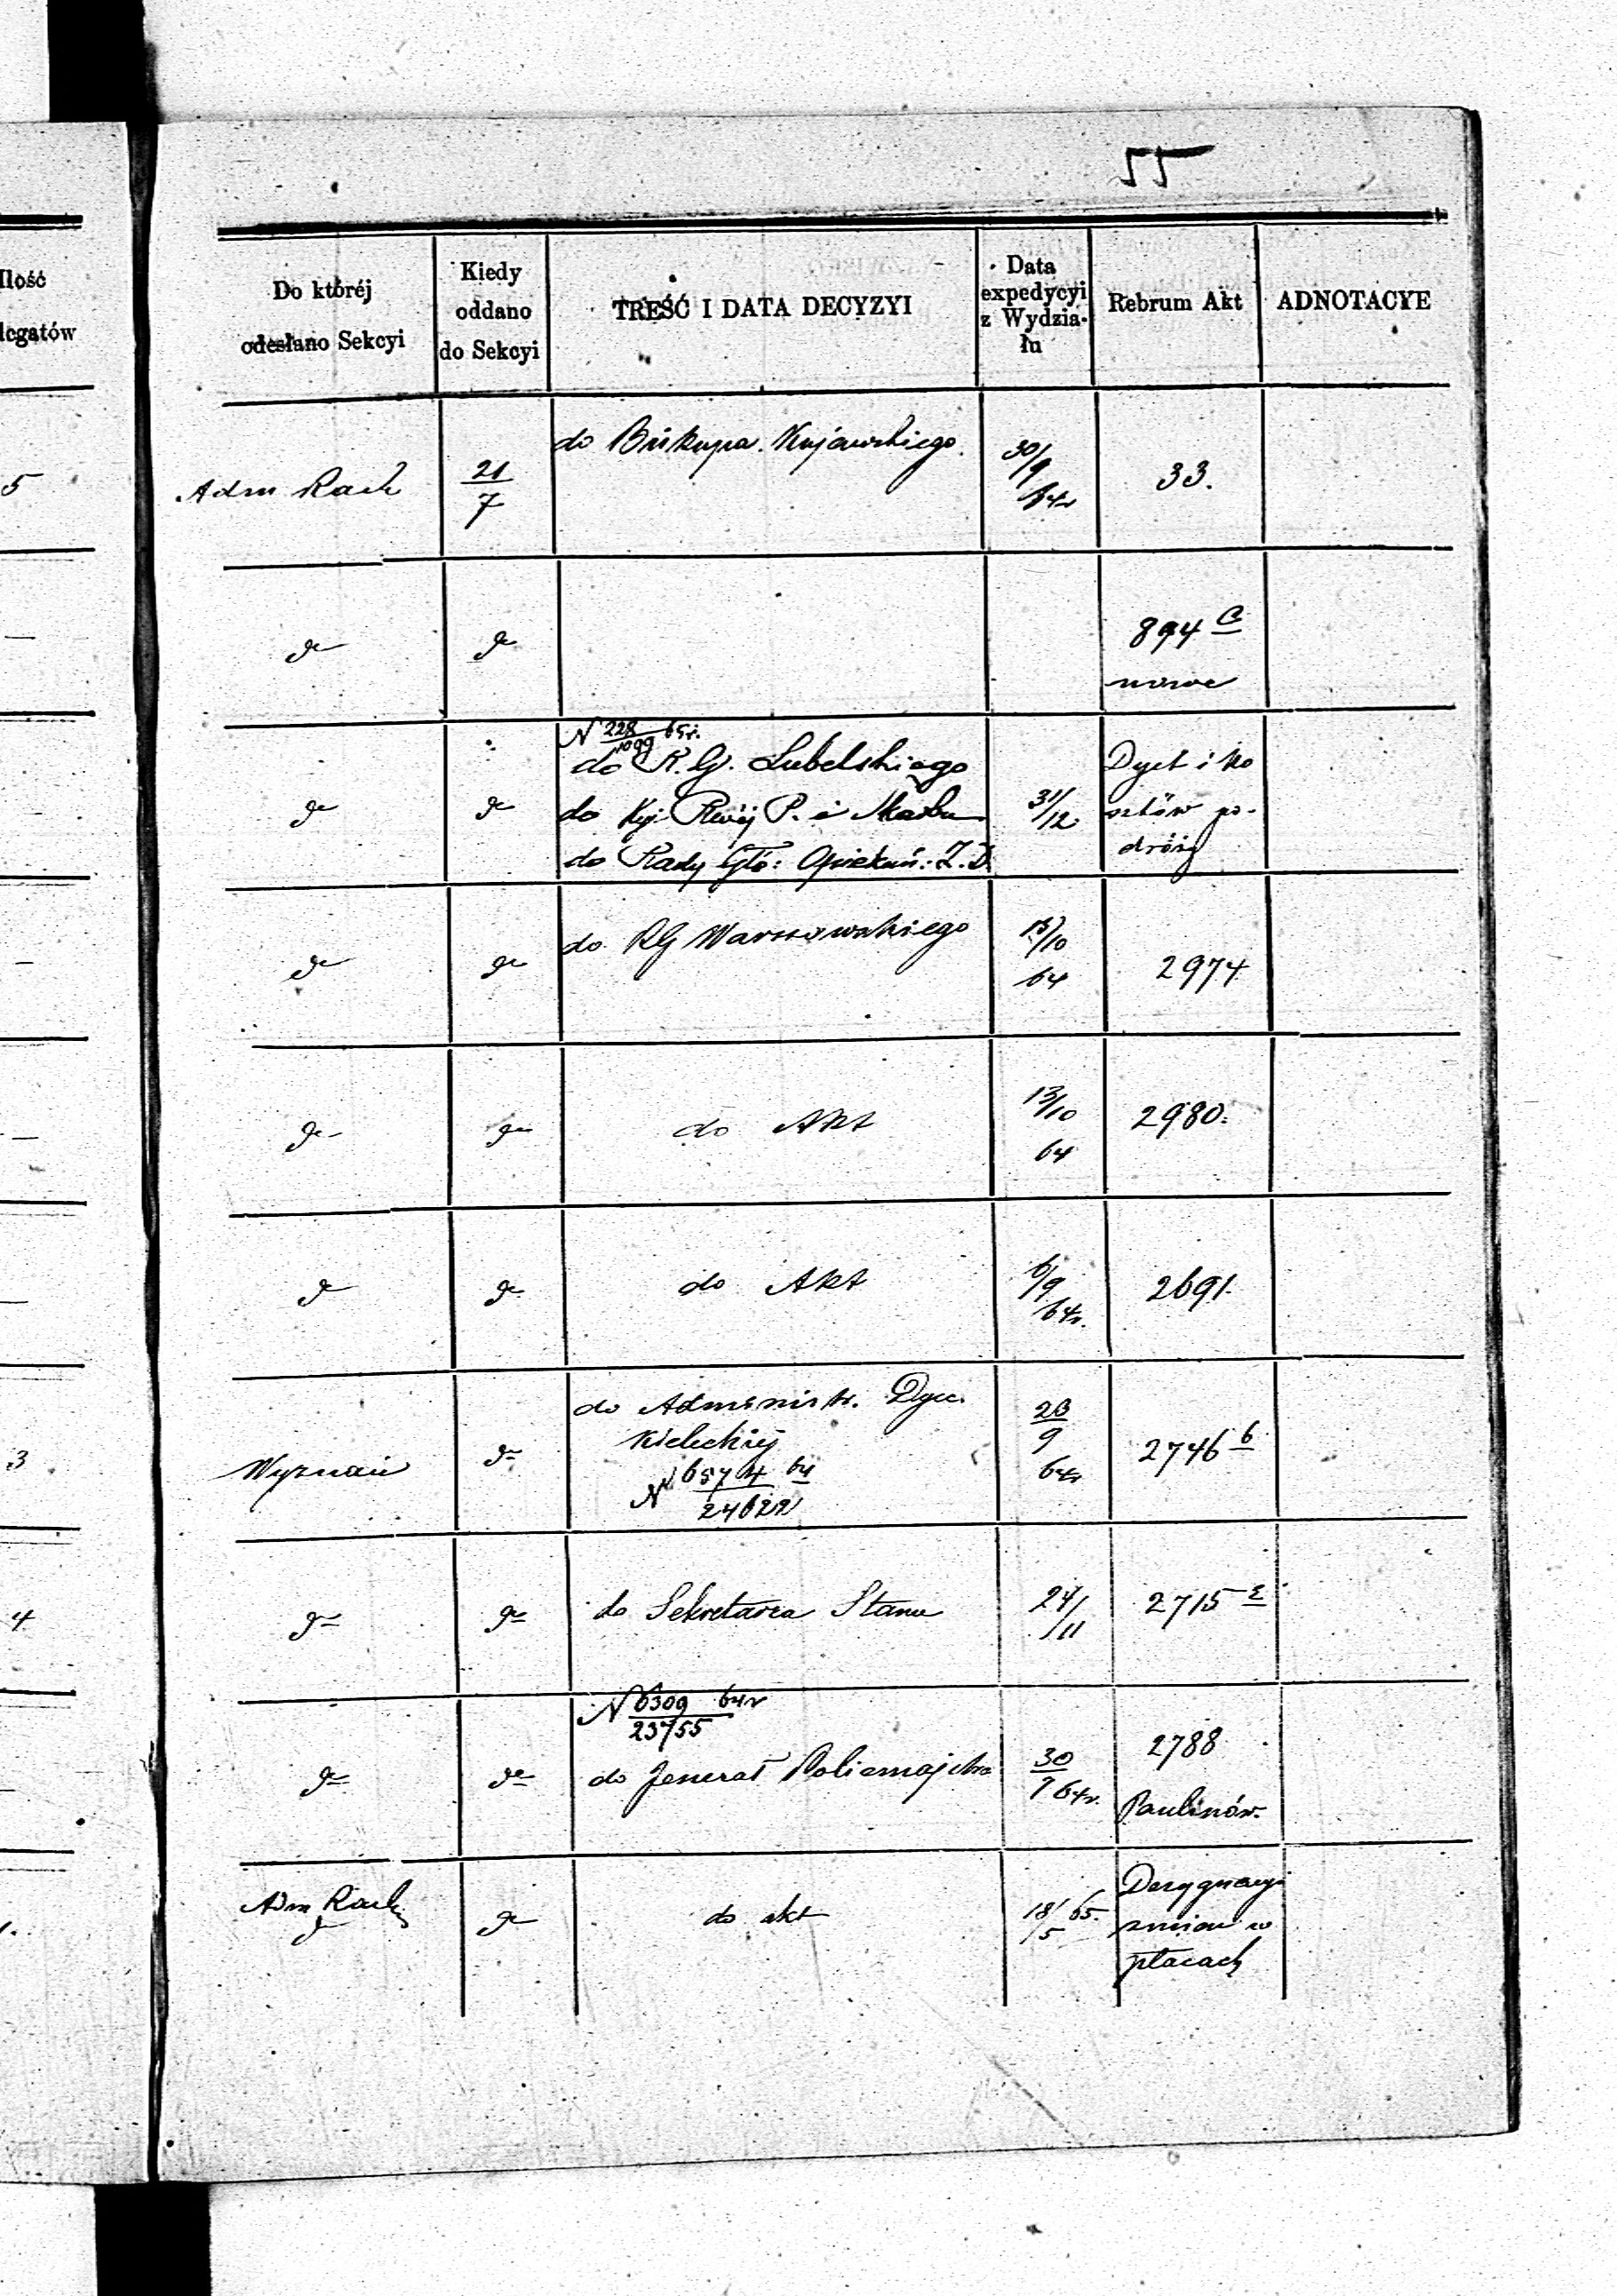 55
Ilość
legatów
Do któréj
odesłano Sekcyi
Kiedy
oddano
do Sekcyi
TREŚĆ I DATA DECYZYI
Data
expedycyi
z Wydzia-
łu
Rebrum Akt
ADNOTACYE
5
Adm Rach
21/7
do Biskupa Kujawskiego.
30/9
64r
33.
—
do
do
894 C
nowe
do
do
N 228/1099 65r.
do R. G. Lubelskiego
do Kji Rwéj P. i Skarbu
do Rady Głó: Opiekuń: Z. D.
31/12
Dyet i ko
sztów po-
dróży
—
do
do
do RG Warszawskiego
13/10
64
2974
—
do
do
do Akt
13/10
64
2980.
—
do
do
do Akt
6/9
64r.
2691.
3
Wyznań
do
do Administr. Dyec.
Kieleckiéj
N 6574/24622 64
23/9
64r
2746 b
4
do
do
do Sekretarza Stanu
24/11
2715
do
do
N 6309/23755 64r
do Jenerał Policmajstra
30/9 64r.
2788
Paulinów.
1.
Adm Rach
do
do
do akt
18/5 65.
Dezygnacye
zmian w
płacach